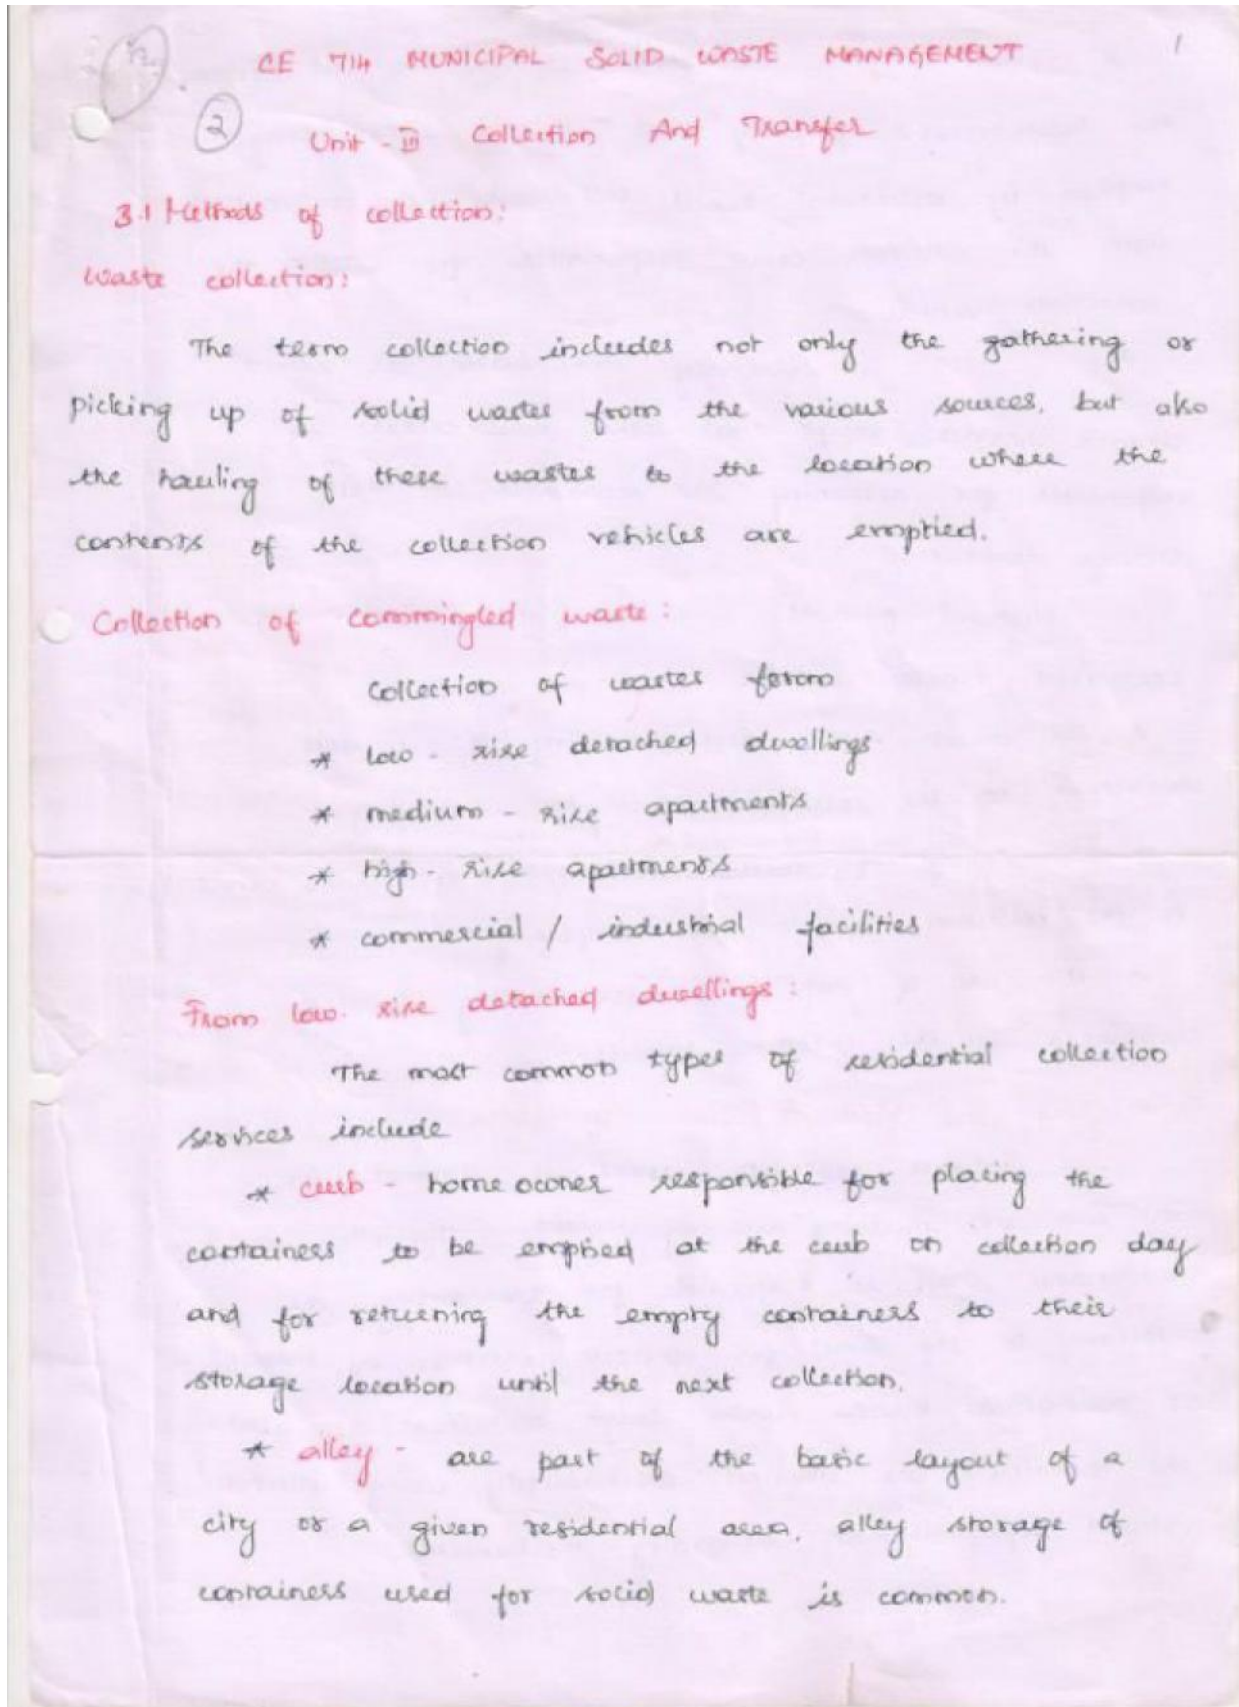 1
CE 714 MUNICIPAL SOLID WASTE MANAGEMENT
2
Unit - III Collection And Transfer
3.1 Methods of collection:
Waste collection:
The term collection includes not only the gathering or
picking up of solid wastes from the various sources, but also
the hauling of these wastes to the location where the
contents of the collection vehicles are emptied.
Collection of commingled waste:
Collection of wastes from
* low - rise detached dwellings
* medium - rise apartments
* high - rise apartments
* commercial / industrial facilities
From low. rise detached dwellings:
The most common types of residential collection
services include
* curb - home owner responsible for placing the
containers to be emptied at the curb on collection day
and for returning the empty containers to their
storage location until the next collection.
* alley - are part of the basic layout of a
city or a given residential area. alley storage of
containers used for solid waste is common.